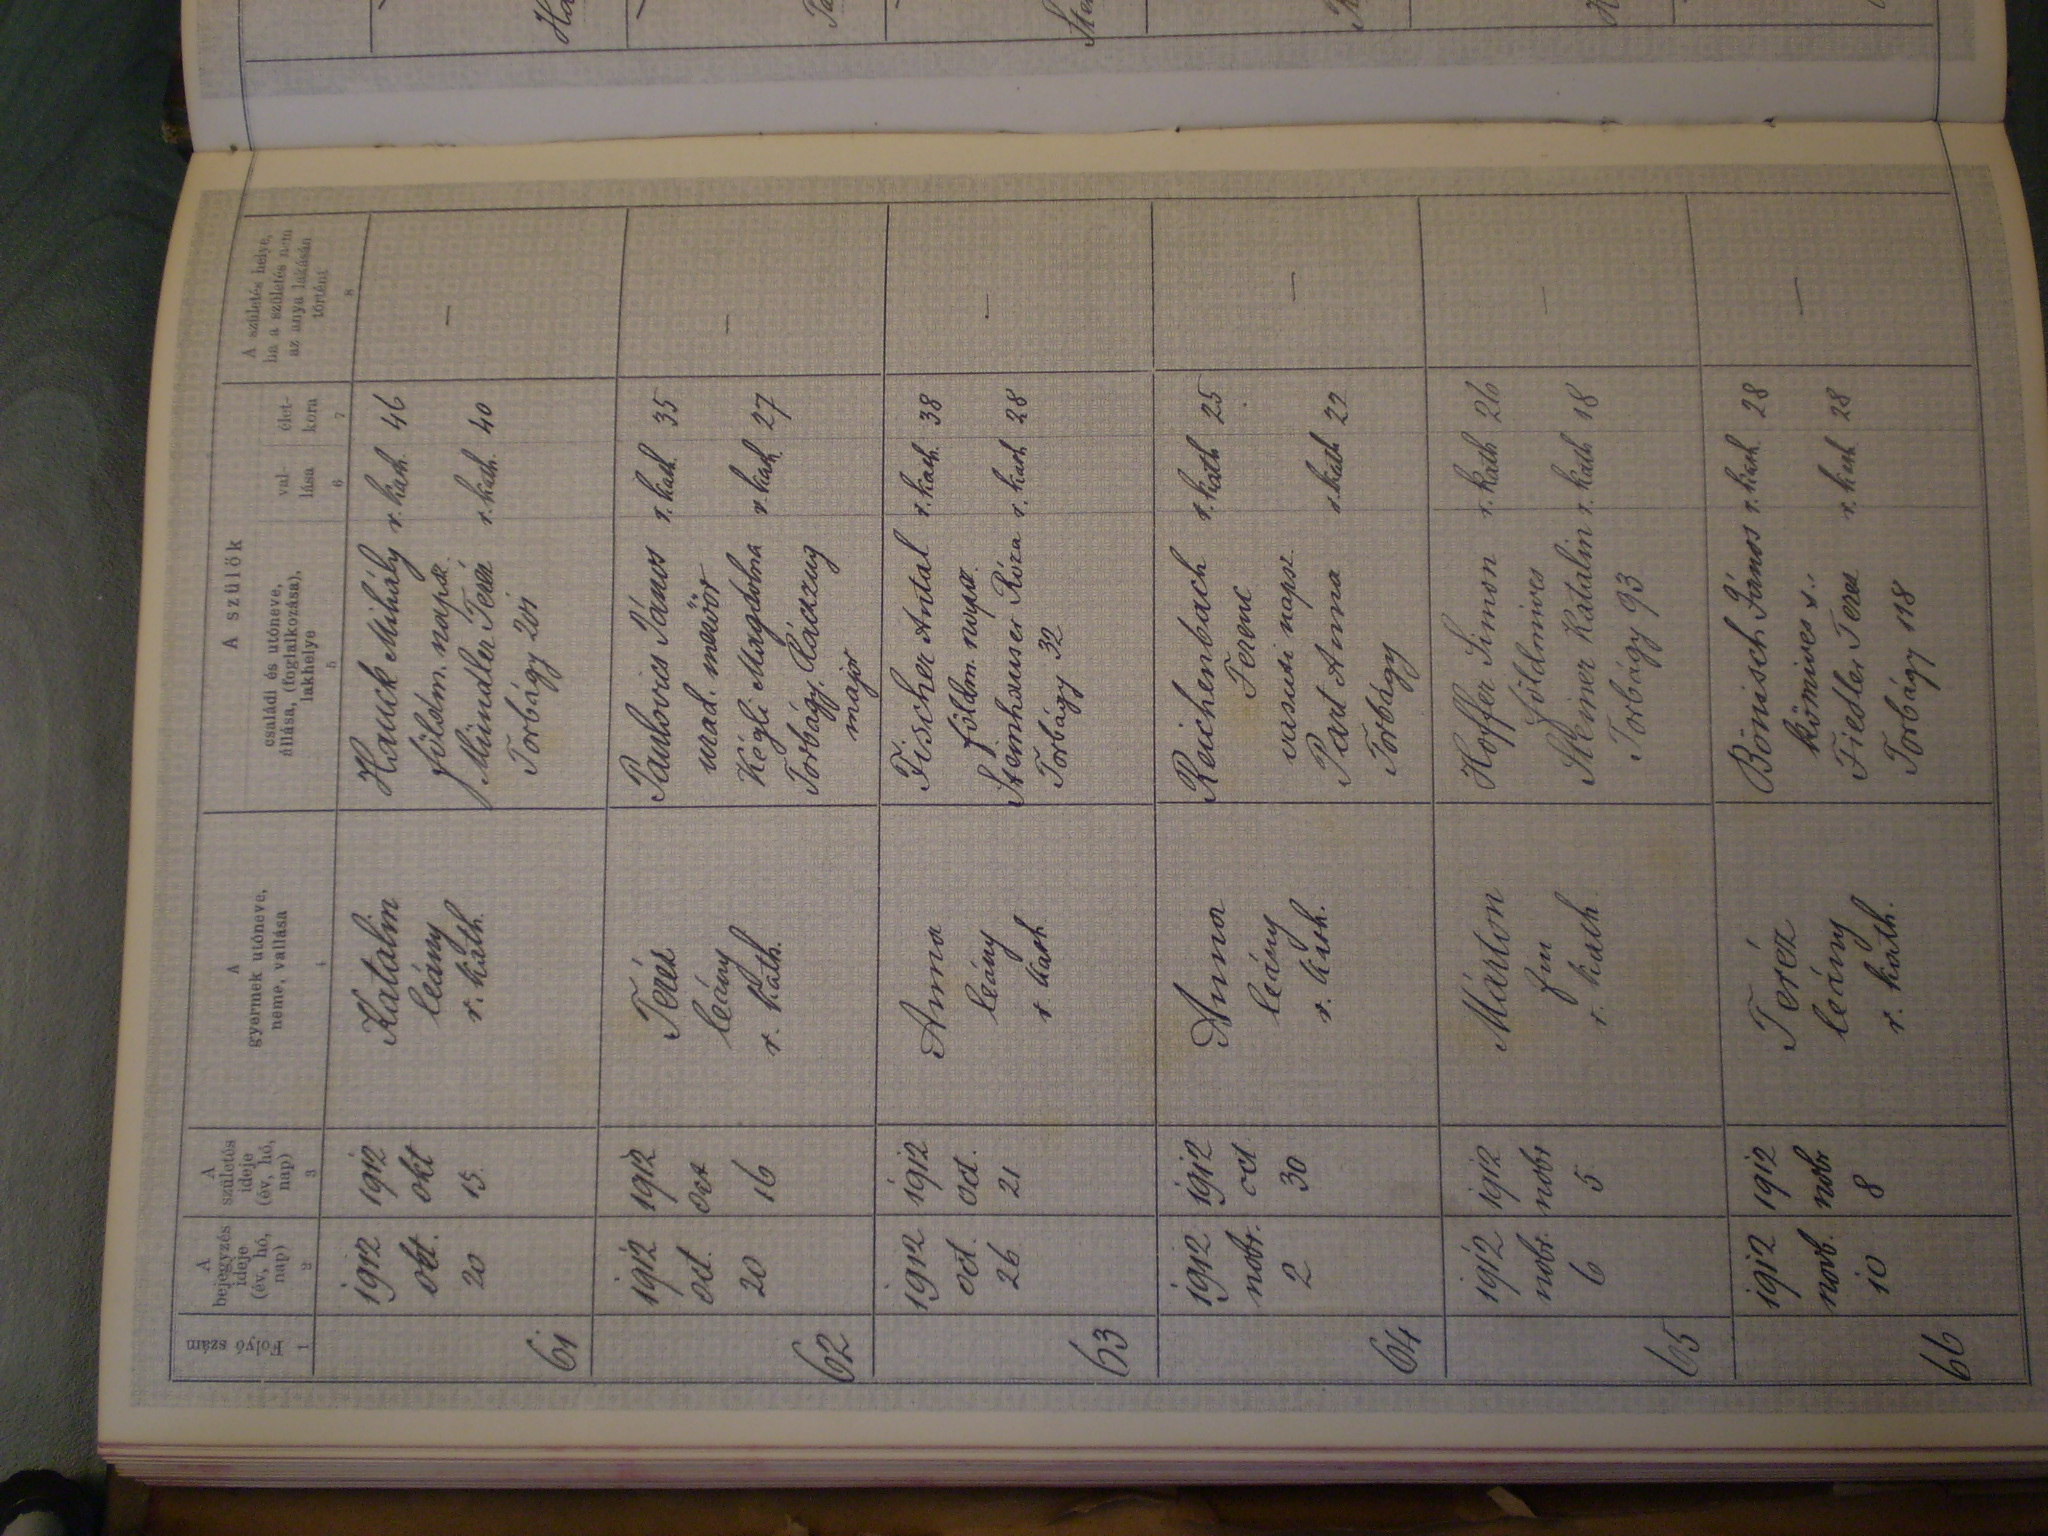 A szülők
1
Folyó szám
2
A
bejegyzés
ideje
(év, hó,
nap)
3
A
születés
ideje
(év, hó,
nap)
4
A
gyermek utóneve,
neme, vallása
5
családi és utóneve,
állása, (foglalkozása),
lakhelye
6
val-
lása
7
élet-
kora
8
A születés helye,
ha a születés nem
az anya lakásán
történt
61
1912
okt.
20
1912
okt
15
Katalin
leány
r. kath.
Hauck Mihály r. kath. 46
földm. naps.
Mindler Teréz r. kath. 40
Torbágy 201
—
62
1912
oct.
20
1912
oct
16
Teréz
leány
r. kath.
Paulovics János r. kath. 35
urad.
Kégli Magdolna r. kath. 27
Torbágy,
major
—
63
1912
oct.
26
1912
oct.
21
Anna
leány
r. kath
Fischer Antal r. kath. 38
földm. naps.
Steinhauser Róza r. kath 28
Torbágy 32
—
64
1912
nobr.
2
1912
oct
30
Anna
leány
r. kath.
Reichenbach r. kath 25
Ferenc
napsz.
Part Anna r. kath 22
Torbágy
—
65
1912
nobr.
6
1912
nobr
5
Márton
fiu
r. kath
Hoffer Simon r. kath 26
földmives
Steiner Katalin r. kath 18
Torbágy 93
—
66
1912
novb.
10
1912
nobr
8
Teréz
leány
r. kath.
Bönisch János r. kath. 28
kőmives s.
Fiedler Terez r. kath 28
Torbágy 118
—